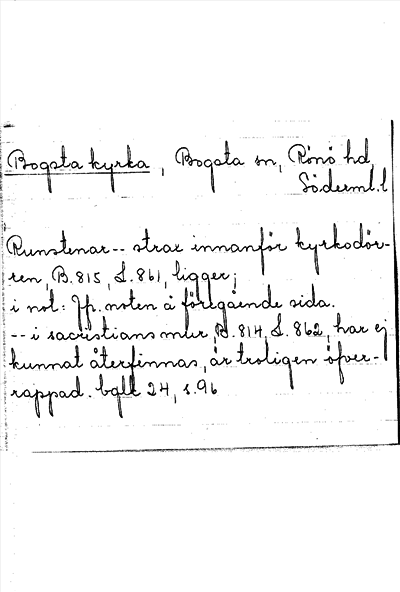 Bogsta kyrka, Bogsta sn, Rönö hd,
Söderml.l
Runstenar -- strax innanför kyrkodör-
ren, B.815, L.861, ligger;
i not: Jfr. noten å föregående sida.
-- i sacristians mur, B.814, L.862, har ej
kunnat återfinnas, är troligen öfver-
rappad. bqll 24, s.96